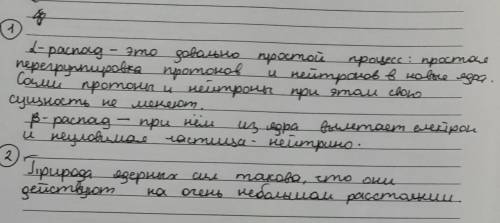 1
α-распад – это довольно простой процесс: простая
перегруппировка протонов и нейтронов в новые ядра.
Сами протоны и нейтроны при этом свою
сущность не меняют.
β-распад – при нём из ядра вылетает електрон
и неуловимая частица - нейтрино.
2
Природа ядерных сил такова, что они
действуют на очень небольшом расстоянии.